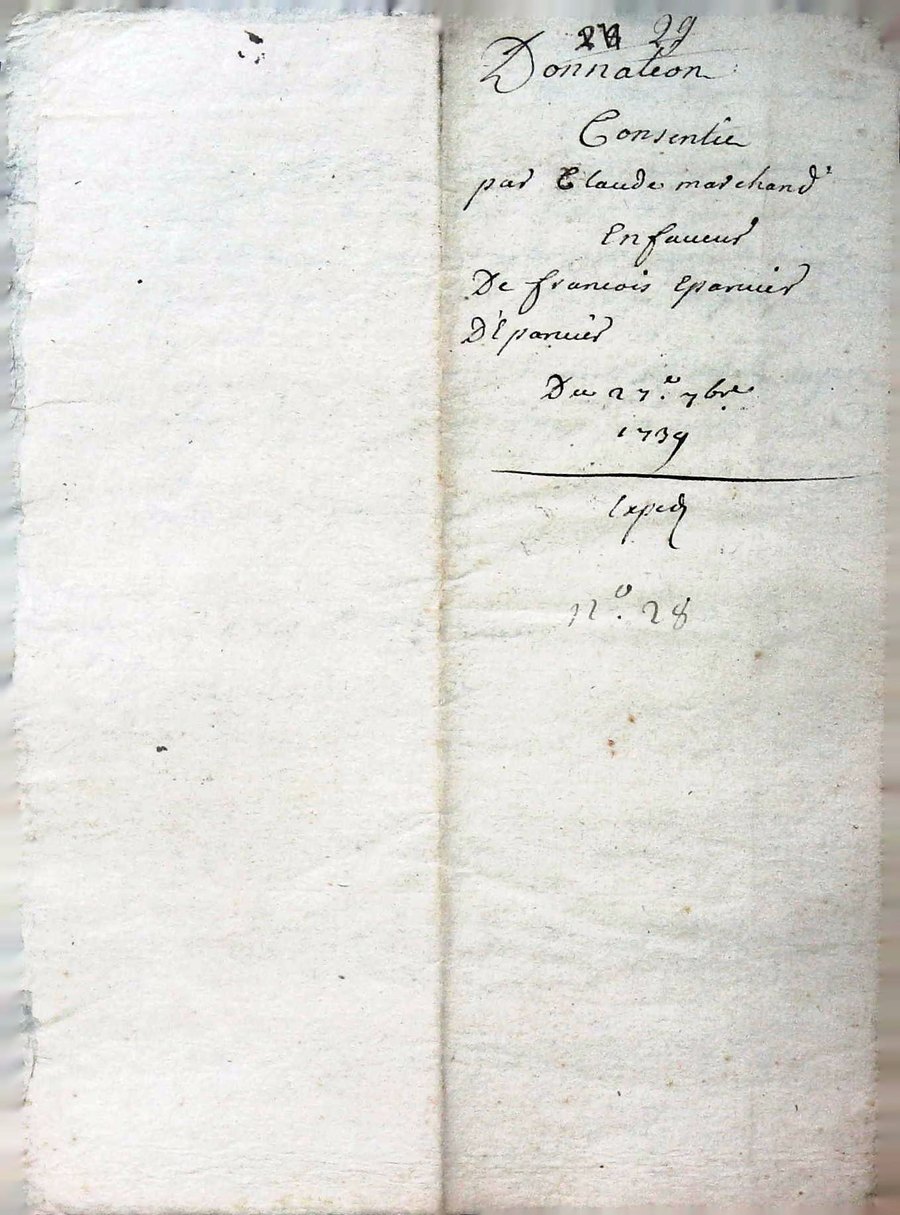 29
Donnation
Consentie
par Claude marchand
En faueur
De francois Eparuier
D'Eparuier
Du 27.e 7bre
1739
Exped
n.o 28